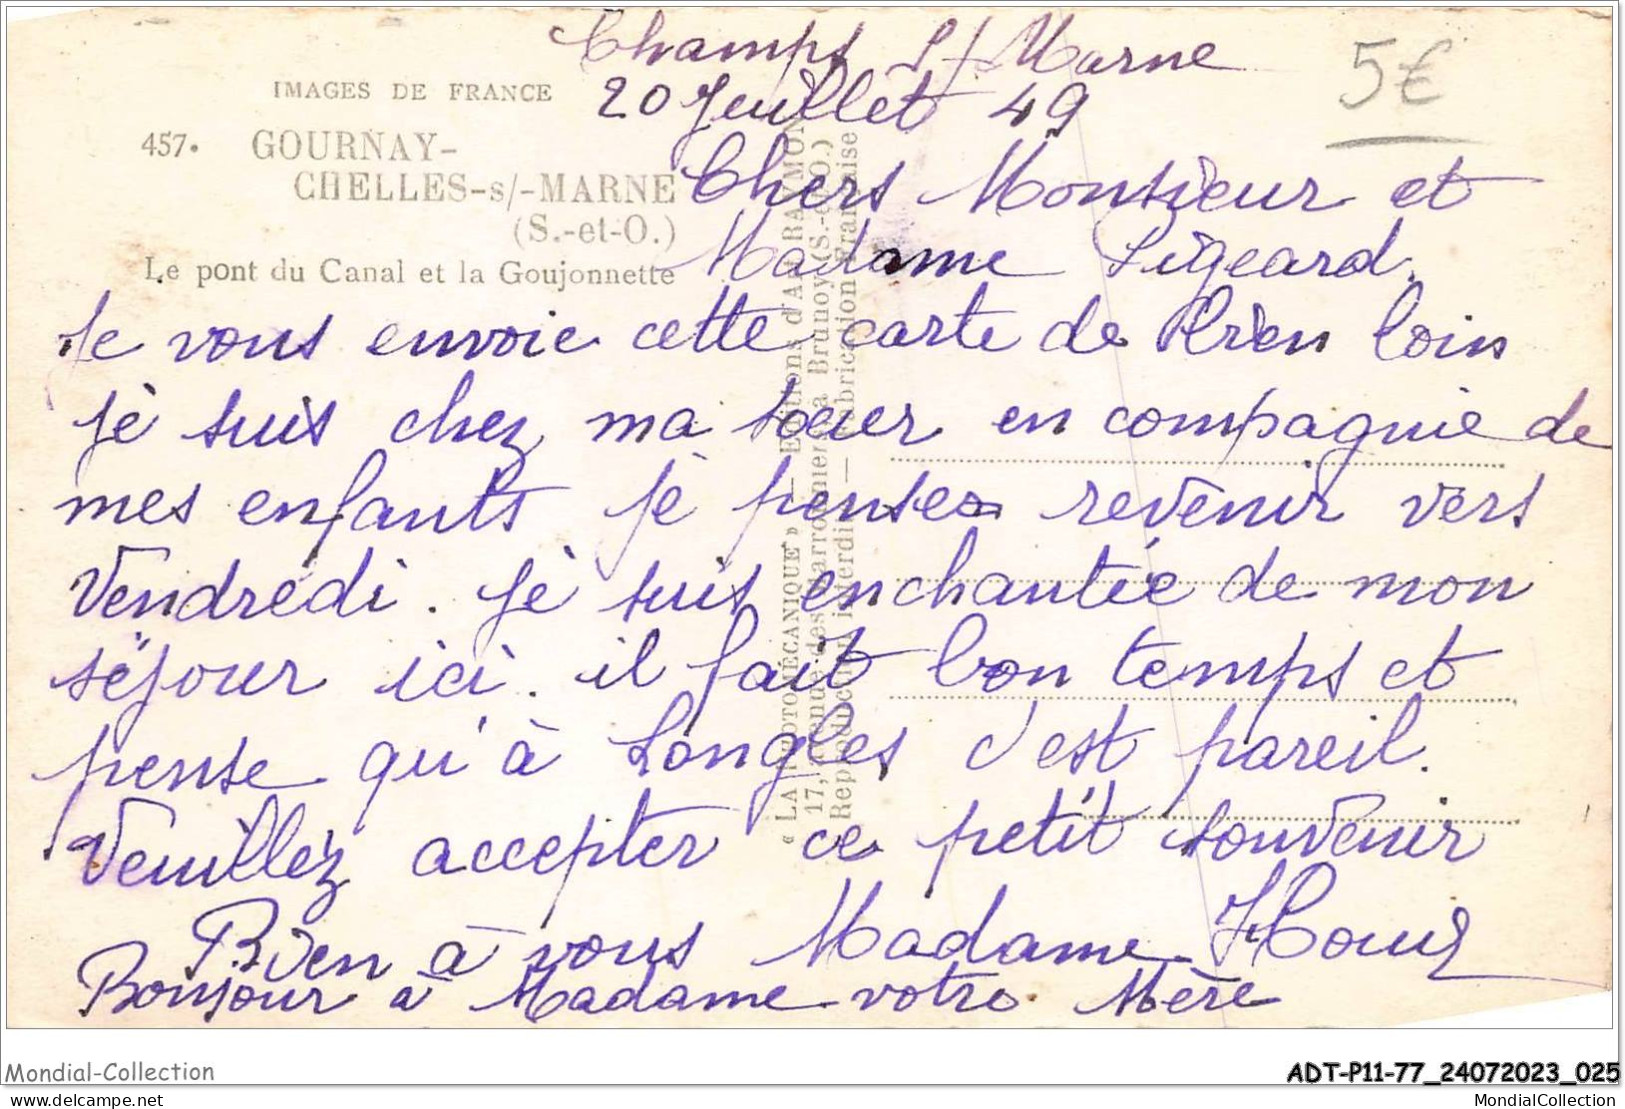 Champs s/Marne
20 Juillet 49
5€
IMAGES DE FRANCE
457. GOURNAY-
CHELLES-s/-MARNE
(S.-et-O.)
Le pont du Canal et la Goujonnette
Chers Monsieur et
Madame Pigeard.
Je vous envoie cette carte de bien loin
je suis chez ma soeur en compagnie de
mes enfants je pense revenir vers
Vendredi. je suis enchantée de mon
séjour ici. il fait bon temps et
pense qu'à Longles c'est pareil.
Veuillez accepter ce petit souvenir
Bien à vous Madame
Bonjour à Madame votre Mère
« LA PHOTOMÉCANIQUE » — Editions d'Art RAYMON
17, avenue des Marronniers à Brunoy (S.-et-O.)
Reproduction interdite — Fabrication Française
Mondial-Collection
ADT-P11-77_24072023_025
www.delcampe.net
MondialCollection